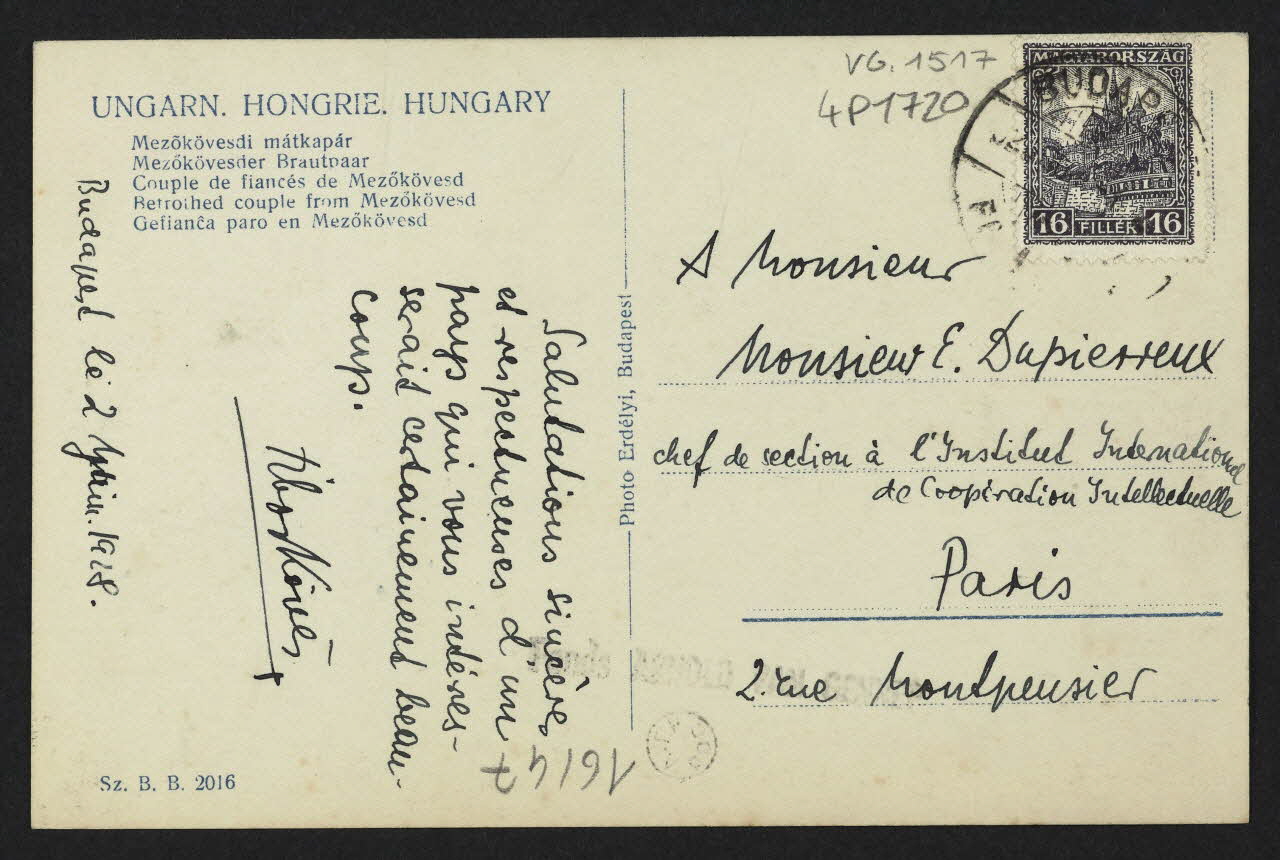 UNGARN. HONGRIE. HUNGARY
Mezőkövesdi mátkapár
Mezőkövesder Brautpaar
Couple de fiancés de Mezőkövesd
Betrothed couple from Mezőkövesd
Gefianĉa paro en Mezőkövesd
Budapest le 2 1928.
Salutations sincères
et respectueuses d'un
pays qui vous intéres-
serait certainement beau-
coup.
Sz. B. B. 2016
Photo Erdélyi, Budapest
VG. 1517
4P1720
MAGYARORSZÁG
16 FILLÉR 16
BUDAP
A Monsieur
Monsieur E. Dupierreux
chef de section à l'Institut International
de Coopération Intellectuelle
Paris
2. rue Montpensier
16147